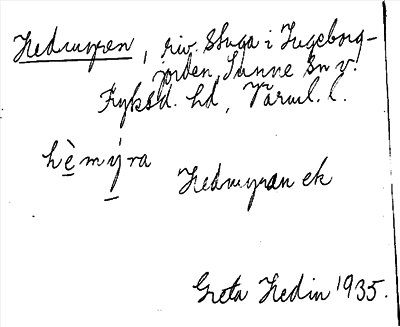 Hedmyren, riv. stuga i Ingeborg-
jorden, Sunne sn v.
Fryksd. hd, Värml. l.
hèmýra
Hedmyran ek
Greta Hedin 1935.